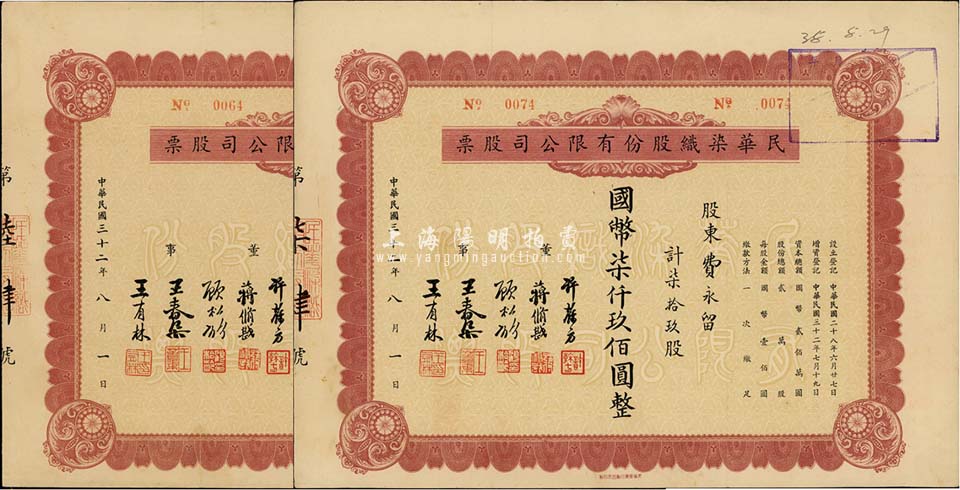 38.8.29
Nº 0064
Nº 0074
Nº 0074
限公司股票
民華染織股份有限公司股票
設立登記 中華民國二十八年六月廿七日
增資登記 中華民國三十二年七月十九日
資本總額 國幣貳佰萬圓
股份總額 貳萬股
每股金額 國幣壹佰圓
繳款方法 一次繳足
股東費永留
計柒拾玖股
國幣柒仟玖佰圓整
董事
蔣脩
顧松
王春
王有林
中華民國三十二年八月一日
董事
蔣脩
顧松
王春
王有林
中華民國三十二年八月一日
第
陸
肆
號
柒
肆
號
上海陽明拍賣
www.yangmingauction.com